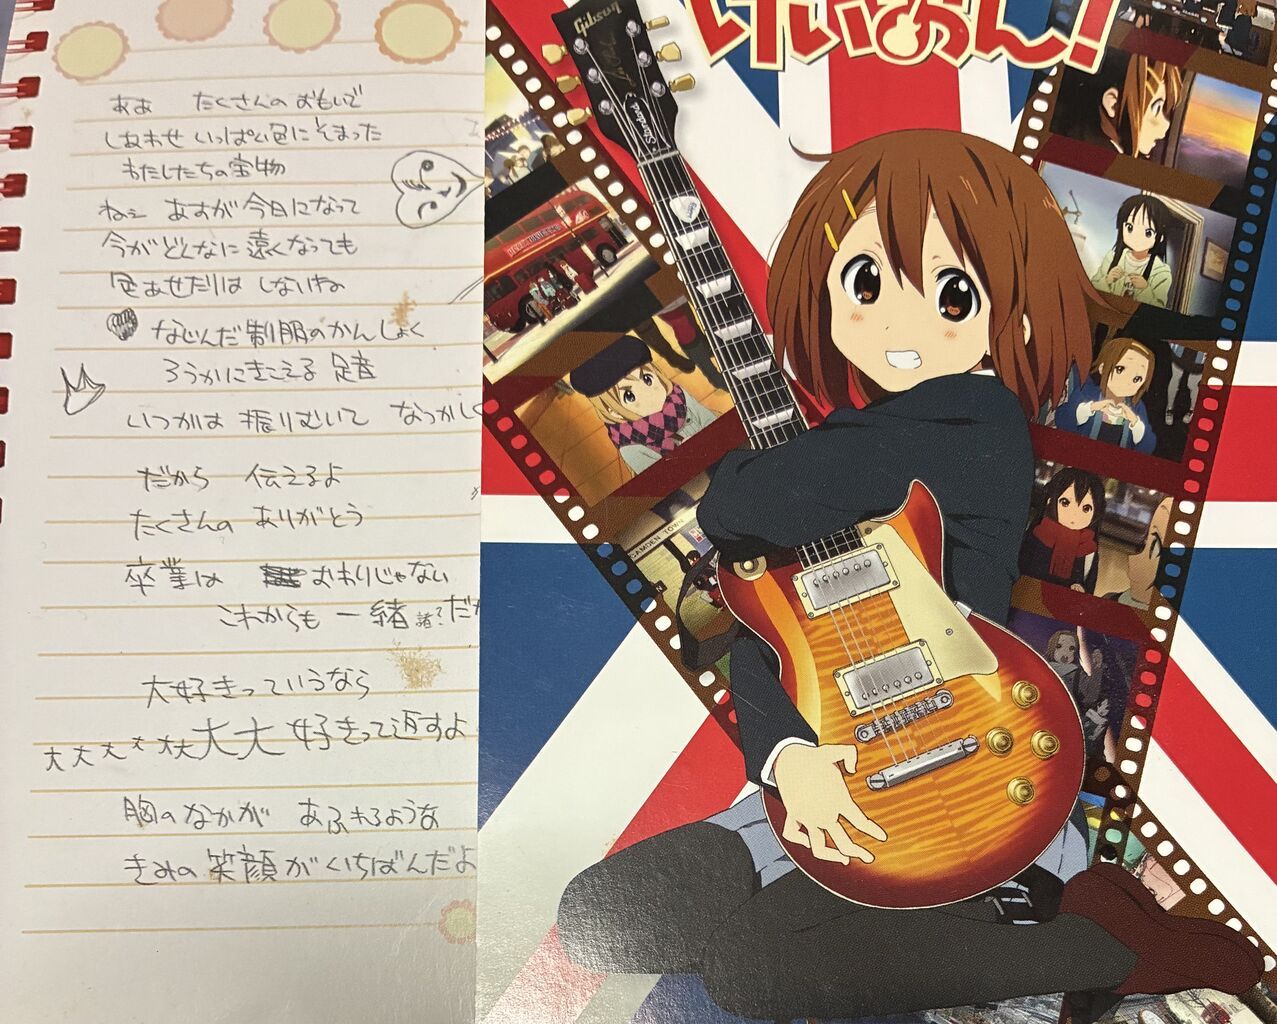 ああ たくさんの おもいで
しあわせ いっぱい色に そまった
わたしたちの宝物
ねぇ あすが今日になって
今がどんなに遠くなっても
色あせたりは しないね
なじんだ制服のかんしょく
ろうかにきこえる足音
いつかは 振りむいて なつかしく
だから 伝えるよ
たくさんの ありがとう
卒業は おわりじゃない
これからも 一緒 諸? だか
大好きっていうなら
大大大大大大大大好きって返すよ
胸のなかが あふれるような
きみの笑顔がいちばんだよ
けいおん!
Gibson
Standard
CAMDEN TOWN